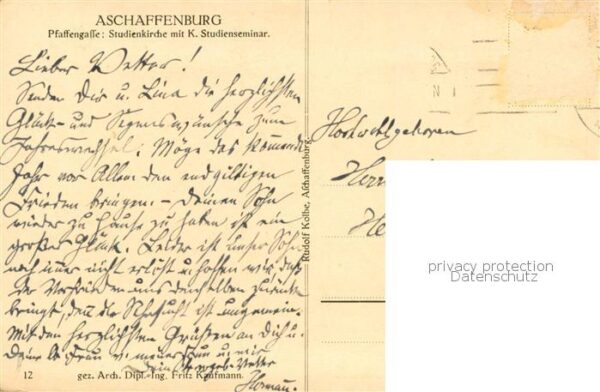 ASCHAFFENBURG
Pfaffengasse: Studienkirche mit K. Studienseminar.
Lieber Vetter!
Senden Dir u. Lina die herzlichsten
Glück- und Segenswünsche zum
Jahreswechsel; Möge das kommende
Jahr vor Allem den endgiltigen
Frieden bringen. – Deinen Sohn
wieder zu Hause zu haben ist ein
großes Glück. Leider ist unser Sohn
noch immer nicht erlöst u. hoffen wir, daß
der Vorfrieden uns denselben zurück
bringt, denn die Sehnsucht ist ungemein.
Mit den herzlichsten Grüßen an Dich u.
Deine lb. Frau v. meiner Frau u. mir
Dein Vetter
Herman.
12 gez. Arch. Dipl.-Ing. Fritz Kaufmann.
Rudolf Kolbe, Aschaffenburg
Hochwohlgeboren
Herr
privacy protection
Datenschutz